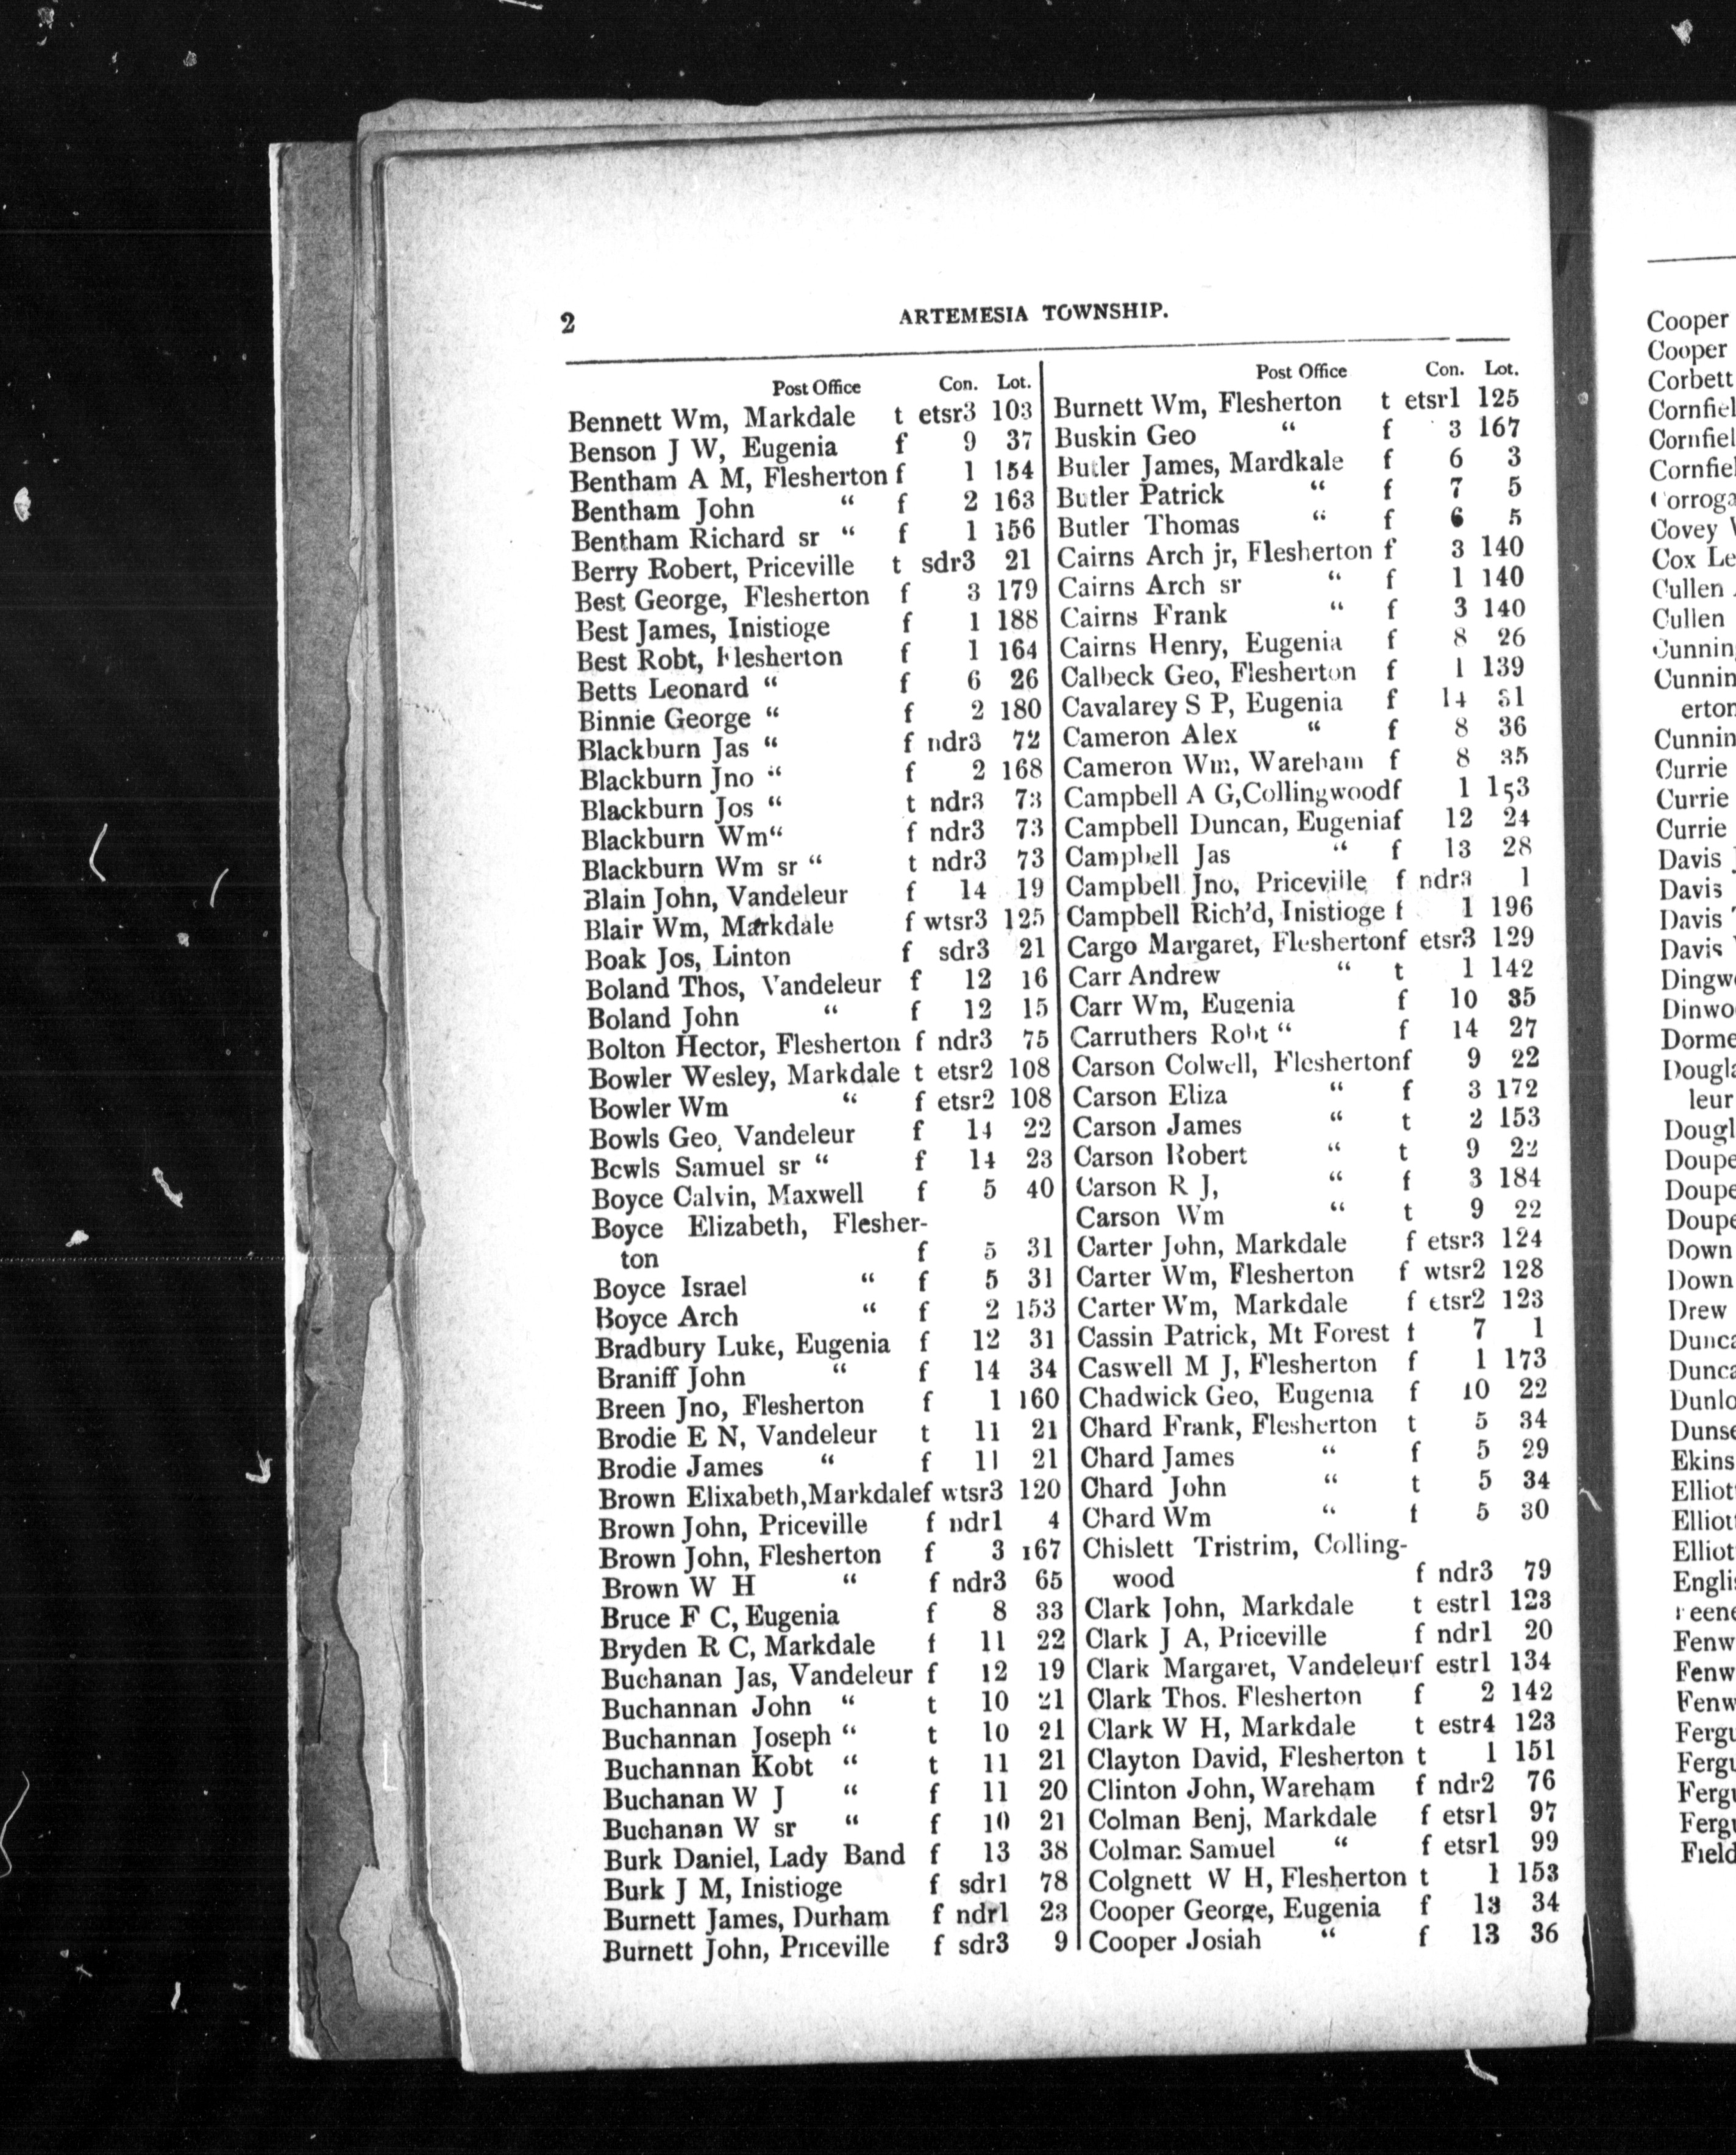 2
ARTEMESIA TOWNSHIP.
Post Office Con. Lot.
Bennett Wm, Markdale t etsr3 103
Benson J W, Eugenia f 9 37
Bentham A M, Flesherton f 1 154
Bentham John “ f 2 163
Bentham Richard sr “ f 1 156
Berry Robert, Priceville t sdr3 21
Best George, Flesherton f 3 179
Best James, Inistioge f 1 188
Best Robt, Flesherton f 1 164
Betts Leonard “ f 6 26
Binnie George “ f 2 180
Blackburn Jas “ f ndr3 72
Blackburn Jno “ f 2 168
Blackburn Jos “ t ndr3 73
Blackburn Wm“ f ndr3 73
Blackburn Wm sr “ t ndr3 73
Blain John, Vandeleur f 14 19
Blair Wm, Markdale f wtsr3 125
Boak Jos, Linton f sdr3 21
Boland Thos, Vandeleur f 12 16
Boland John “ f 12 15
Bolton Hector, Flesherton f ndr3 75
Bowler Wesley, Markdale t etsr2 108
Bowler Wm “ f etsr2 108
Bowls Geo, Vandeleur f 14 22
Bowls Samuel sr “ f 14 23
Boyce Calvin, Maxwell f 5 40
Boyce Elizabeth, Flesher-
ton f 5 31
Boyce Israel “ f 5 31
Boyce Arch “ f 2 153
Bradbury Luke, Eugenia f 12 31
Braniff John “ f 14 34
Breen Jno, Flesherton f 1 160
Brodie E N, Vandeleur t 11 21
Brodie James “ f 11 21
Brown Elixabeth,Markdalef wtsr3 120
Brown John, Priceville f ndr1 4
Brown John, Flesherton f 3 167
Brown W H “ f ndr3 65
Bruce F C, Eugenia f 8 33
Bryden R C, Markdale f 11 22
Buchanan Jas, Vandeleur f 12 19
Buchannan John “ t 10 21
Buchannan Joseph “ t 10 21
Buchannan Kobt “ t 11 21
Buchanan W J “ f 11 20
Buchanan W sr “ f 10 21
Burk Daniel, Lady Band f 13 38
Burk J M, Inistioge f sdr1 78
Burnett James, Durham f ndr1 23
Burnett John, Priceville f sdr3 9
Post Office Con. Lot.
Burnett Wm, Flesherton t etsr1 125
Buskin Geo “ f 3 167
Butler James, Mardkale f 6 3
Butler Patrick “ f 7 5
Butler Thomas “ f 6 5
Cairns Arch jr, Flesherton f 3 140
Cairns Arch sr “ f 1 140
Cairns Frank “ f 3 140
Cairns Henry, Eugenia f 8 26
Calbeck Geo, Flesherton f 1 139
Cavalarey S P, Eugenia f 14 31
Cameron Alex “ f 8 36
Cameron Wm, Wareham f 8 35
Campbell A G,Collingwoodf 1 153
Campbell Duncan, Eugeniaf 12 24
Campbell Jas “ f 13 28
Campbell Jno, Priceville f ndr3 1
Campbell Rich’d, Inistioge f 1 196
Cargo Margaret, Fleshertonf etsr3 129
Carr Andrew “ t 1 142
Carr Wm, Eugenia f 10 35
Carruthers Robt “ f 14 27
Carson Colwell, Fleshertonf 9 22
Carson Eliza “ f 3 172
Carson James “ t 2 153
Carson Robert “ t 9 22
Carson R J, “ f 3 184
Carson Wm “ t 9 22
Carter John, Markdale f etsr3 124
Carter Wm, Flesherton f wtsr2 128
Carter Wm, Markdale f etsr2 123
Cassin Patrick, Mt Forest f 7 1
Caswell M J, Flesherton f 1 173
Chadwick Geo, Eugenia f 10 22
Chard Frank, Flesherton t 5 34
Chard James “ f 5 29
Chard John “ t 5 34
Chard Wm “ f 5 30
Chislett Tristrim, Colling-
wood f ndr3 79
Clark John, Markdale t estr1 123
Clark J A, Priceville f ndr1 20
Clark Margaret, Vandeleurf estr1 134
Clark Thos. Flesherton f 2 142
Clark W H, Markdale t estr4 123
Clayton David, Flesherton t 1 151
Clinton John, Wareham f ndr2 76
Colman Benj, Markdale f etsr1 97
Colman Samuel “ f etsr1 99
Colgnett W H, Flesherton t 1 153
Cooper George, Eugenia f 13 34
Cooper Josiah “ f 13 36
Cooper
Cooper
Corbett
Cornfiel
Cornfiel
Cornfiel
Corroga
Covey
Cox Le
Cullen
Cullen
Cunnin
Cunnin
erton
Cunnin
Currie
Currie
Currie
Davis
Davis
Davis
Davis
Dingw
Dinwo
Dorme
Dougla
leur
Dougl
Doupe
Doupe
Doupe
Down
Down
Drew
Dunca
Dunca
Dunlo
Dunse
Ekins
Elliot
Elliot
Elliot
Englis
Feene
Fenw
Fenw
Fenw
Fergu
Fergu
Fergu
Fergu
Field